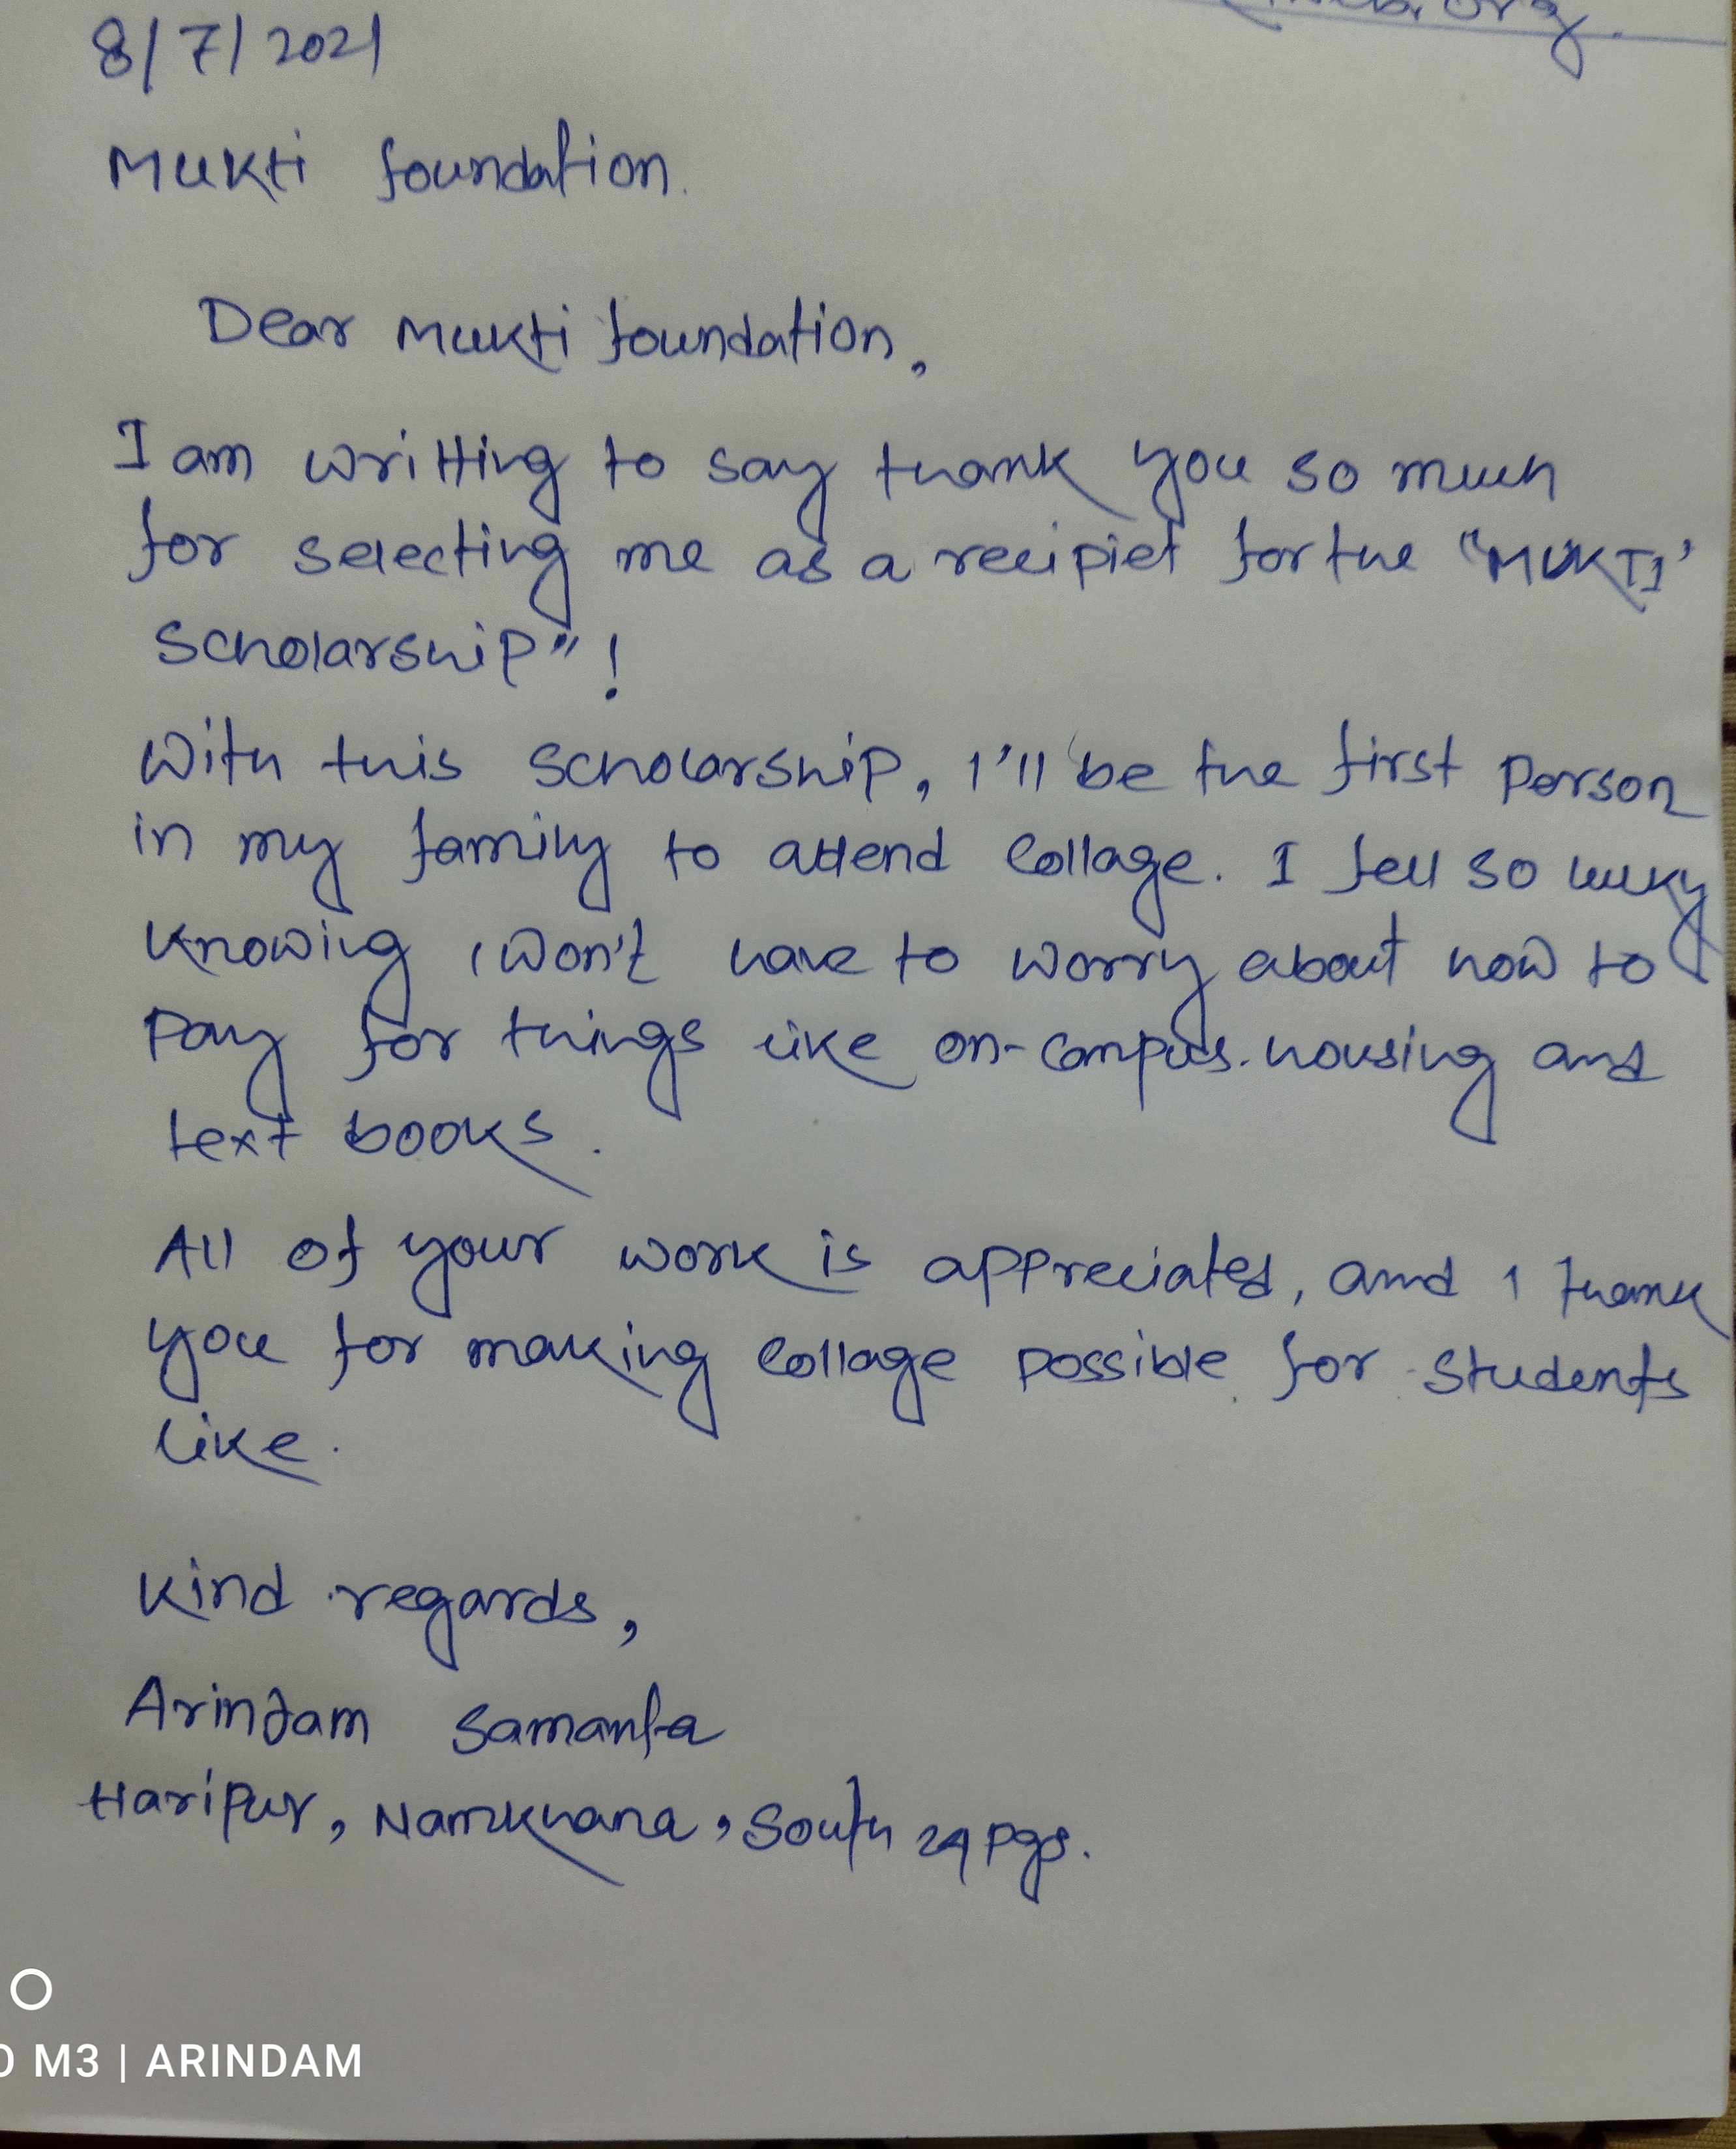 8/7/2021
Mukti foundation.
Dear Mukti foundation,
I am writting to say thank you so much
for selecting me as a recipiet for the "MUKTI'
Scholarship"!
With this scholarship, I'll be the first Person
in my family to attend Collage. I fell so lucky
knowing I won't have to worry about how to
Pay for things like on-campus. housing and
text books.
All of your work is appreciated, and I thank
you for making Collage possible for students
like.
Kind regards,
Arindam Samanta
Haripur, Namkhana, South 24 pgs.
M3 | ARINDAM